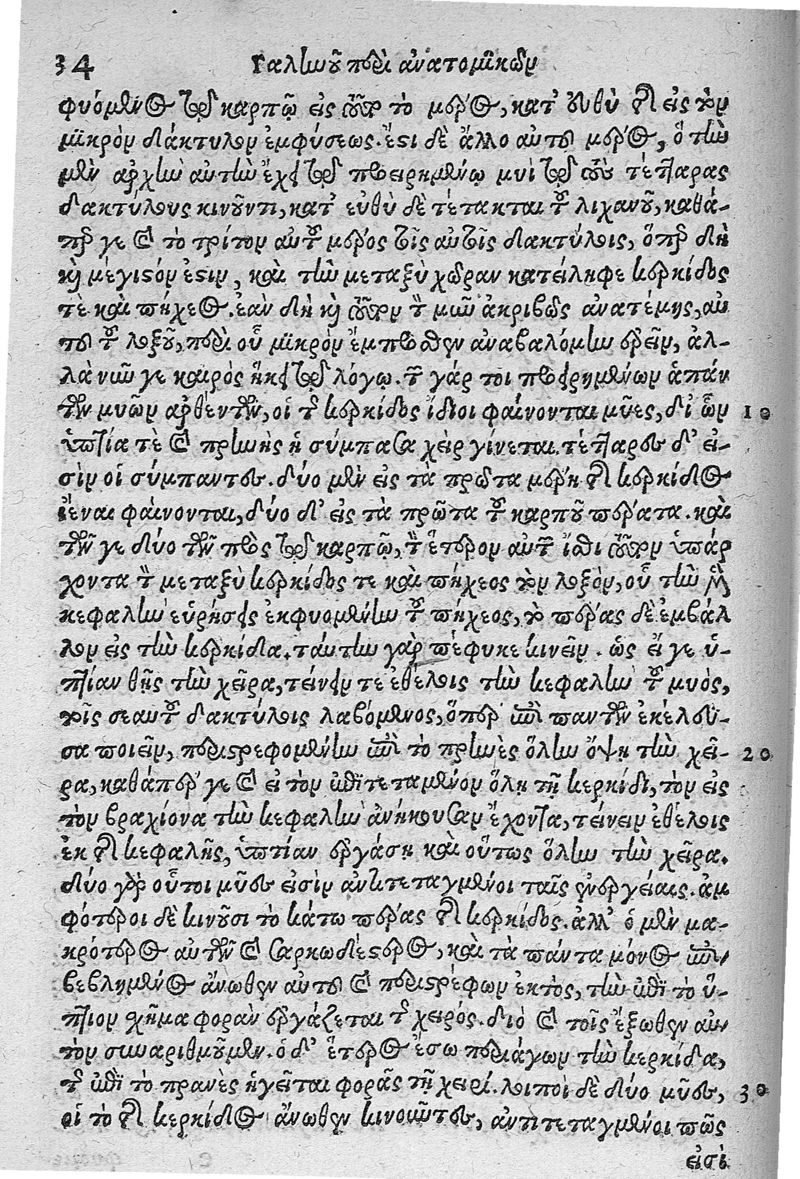 34 Γαλίωοῦ περὶ ἀνατομικῶν
φυόμενος τῷ καρπῷ εἰς αὐτὸ τὸ μέρος, κατ' εὐθὺ τῆς εἰς τὸν
μικρὸν δάκτυλον ἐμφύσεως. ἔστι δὲ ἄλλο αὐτοῦ μέρος, ὃ τὴν
μὲν ἀρχὴν αὐτὴν ἔχει τῷ προειρημένῳ μυῒ τῷ τοὺς τέτταρας
δακτύλους κινοῦντι, κατ' εὐθὺ δὲ τέτακται τοῦ λιχανοῦ, καθά-
περ γε καὶ τὸ τρίτον αὐτοῦ μέρος τοῖς αὐτοῖς δακτύλοις, ὅπερ δὴ
καὶ μέγιστόν ἐστιν, καὶ τὴν μεταξὺ χώραν κατείληφε κερκίδος
τὲ καὶ πήχεος. ἐὰν δὴ καὶ τοῦτον τὸν μῦν ἀκριβῶς ἀνατέμῃς, αὐ
τοῦ λοξοῦ, περὶ οὗ μικρὸν ἔμπροσθεν ἀναβαλόμην ἐρεῖν, ἀλ-
λὰ νῦν γε καιρὸς ἥκει τῷ λόγῳ. τῶν γάρ τοι προειρημένων ἁπάν
των μυῶν ἀρθέντων, οἱ τῆς κερκίδος ἴδιοι φαίνονται μῦες, δι' ὧν 10
ὑπτία τὲ καὶ πρηνὴς ἡ σύμπασα χεὶρ γίνεται. τέτταρες δ' εἰ-
σὶν οἱ σύμπαντες. δύο μὲν εἰς τὰ πρῶτα μέρη τῆς κερκίδος
ἰέναι φαίνονται, δύο δ' εἰς τὰ πρῶτα τοῦ καρποῦ πέρατα. καὶ
τῶν γε δύο τῶν πρὸς τῷ καρπῷ, τὸν ἕτερον αὐτῶν ἴσθι τοῦτον ὑπάρ
χοντα τὸν μεταξὺ κερκίδος τε καὶ πήχεος τὸν λοξὸν, οὗ τὴν μὲν
κεφαλὴν εὑρήσεις ἐκφυομένην τοῦ πήχεος, τὸ πέρας δὲ ἐμβάλ
λον εἰς τὴν κερκίδα. ταύτην γὰρ πέφυκε κινεῖν. ὡς εἴ γε ὑ-
πτίαν θῇς τὴν χεῖρα, τείνειν τε ἐθέλοις τὴν κεφαλὴν τοῦ μυὸς,
τοῖς σεαυτοῦ δακτύλοις λαβόμενος, ὅπερ ἐπὶ πάντων ἐκέλευ-
σα ποιεῖν, περιστρεφομένην ἐπὶ τὸ πρηνὲς ὅλην ὄψῃ τὴν χεῖ- 20
ρα, καθάπερ γε καὶ εἰ τὸν ἐπιτεταμένον ὅλῃ τῇ κερκίδι, τὸν εἰς
τὸν βραχίονα τὴν κεφαλὴν ἀνήκουσαν ἔχοντα, τείνειν ἐθέλοις
ἐκ τῆς κεφαλῆς, ὑπτίαν ἐργάσῃ καὶ οὕτως ὅλην τὴν χεῖρα.
δύο γὰρ οὗτοι μῦες εἰσὶν ἀντιτεταγμένοι ταῖς ἐνεργείαις. ἀμ
φότεροι δὲ κινοῦσι τὸ κάτω πέρας τῆς κερκίδος. ἀλλ' ὁ μὲν μα-
κρότερος αὐτῶν καὶ σαρκωδέστερος, καὶ τὰ πάντα μόνος ἐπι-
βεβλημένος ἄνωθεν αὐτοῦ καὶ περιστρέφων ἐκτὸς, τὴν ἐπὶ τὸ ὕ-
πτιον σχῆμα φορὰν ἐργάζεται τῆς χειρός. διὸ καὶ τοῖς ἔξωθεν αὐ-
τὸν συναριθμοῦμεν. ὁ δ' ἕτερος ἔσω περιάγων τὴν κερκίδα,
τῆς ἐπὶ τὸ πρανὲς ἡγεῖται φορᾶς τῇ χειρί. λοιποὶ δὲ δύο μῦες, 30
οἱ τὸ τῆς κερκίδος ἄνωθεν κινοῦντες, ἀντιτεταγμένοι πῶς
εἰσὶ